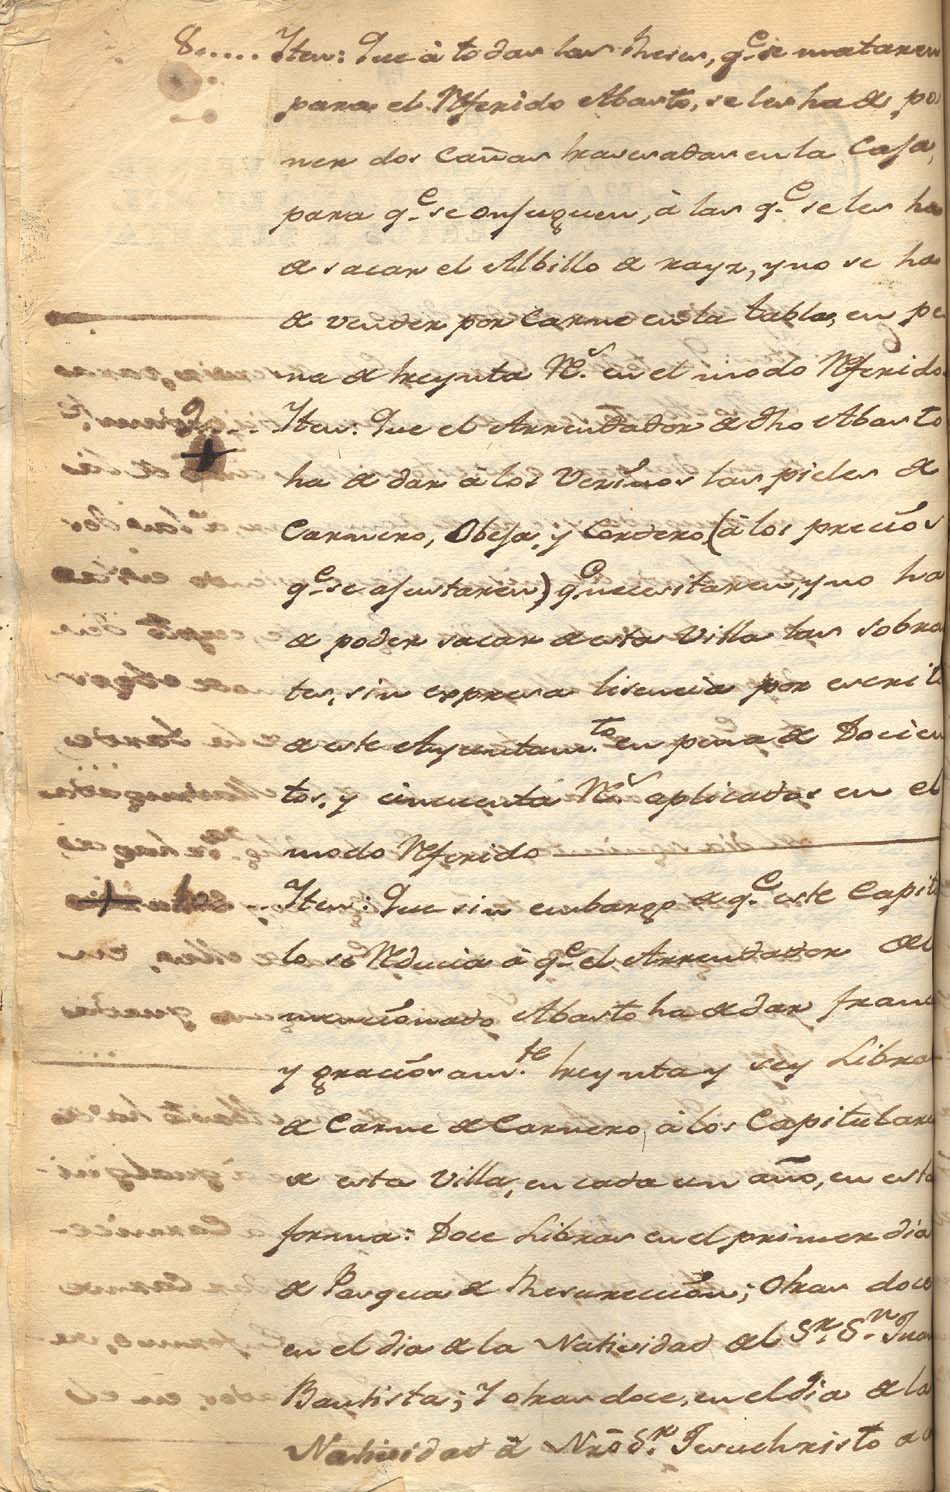 8..... Iten: Que à todas las Reses, q.e se mataren
para el Referido Abasto, se les ha de po
ner dos Cañas travesadas en la Casa,
para q.e se onfuguen, à las q.e se les ha
de sacar el Albillo de rayz, y no se ha
de vender por Carne en la tabla, en pe
na de treynta R.s en el modo Referido.
9... Iten: Que el Arrendador de dho Abasto
ha de dar à los Vezinos las pieles de
Carnero, Obeja, y Cordero, (à los precios
q.e se ajustaren) q.e necesitaren, y no ha
de poder sacar de esta Villa las sobra
tes, sin expresa lisencia por escrito
de este Ayuntam.to en pena de Docien
tos, y cincuenta R.s aplicados en el
modo Referido
10... Iten: Que sin embargo de q.e este Capit
lo se Reducia à q.e el Arrendador del
mencionado Abasto ha de dar franc
y graciosam.te treynta y sey Libras
de Carne de Carnero, à los Capitulares
de esta Villa, en cada un año, en esta
forma: Doce Libras en el primer dia
de Pasqua de Resureccion; Otras doce
en el dia de la Natividad del S.r S.n Juan
Bautista; Y otras doce, en el dia de la
Natividad de Nro S.r Jesuchristo de